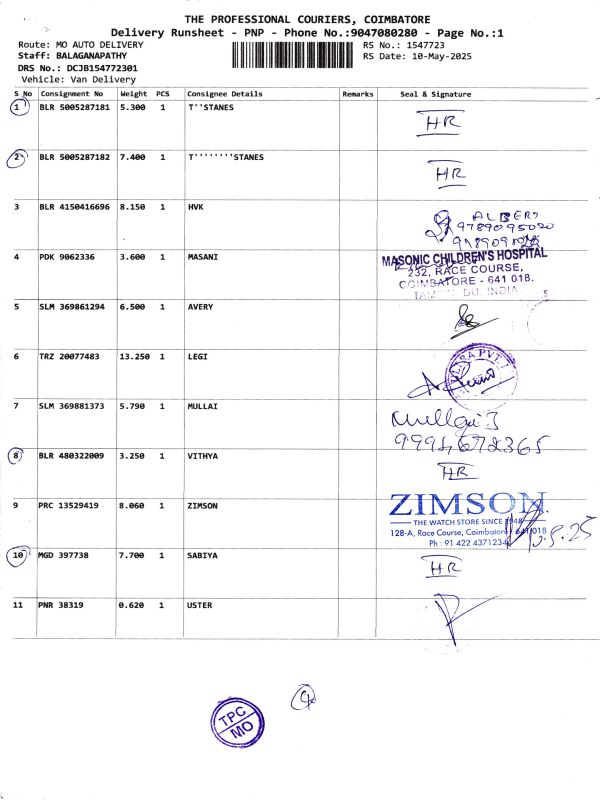 THE PROFESSIONAL COURIERS, COIMBATORE
Delivery Runsheet - PNP - Phone No.:9047080280 - Page No.:1
Route: MO AUTO DELIVERY
RS No.: 1547723
Staff: BALAGANAPATHY
RS Date: 10-May-2025
DRS No.: DCJB154772301
Vehicle: Van Delivery
S No Consignment No Weight PCS Consignee Details Remarks Seal & Signature
1 BLR 5005287181 5.300 1 T''STANES
HR
2 BLR 5005287182 7.400 1 T''''''''STANES
HR
3 BLR 4150416696 8.150 1 HVK
ALBERT
9789095020
4 PDK 9062336 3.600 1 MASANI
MASONIC CHILDREN'S HOSPITAL
232, RACE COURSE,
COIMBATORE - 641 018.
INDIA
5 SLM 369861294 6.500 1 AVERY
6 TRZ 20077483 13.250 1 LEGI
PVT.
7 SLM 369881373 5.790 1 MULLAI
Mullai J
9994672365
8 BLR 480322009 3.250 1 VITHYA
HR
9 PRC 13529419 8.060 1 ZIMSON
ZIMSON
THE WATCH STORE SINCE 1948
128-A, Race Course, Coimbatore - 641 018
Ph : 91 422 4371234
10 MGD 397738 7.700 1 SABIYA
HR
11 PNR 38319 0.620 1 USTER
4
TPC
MO